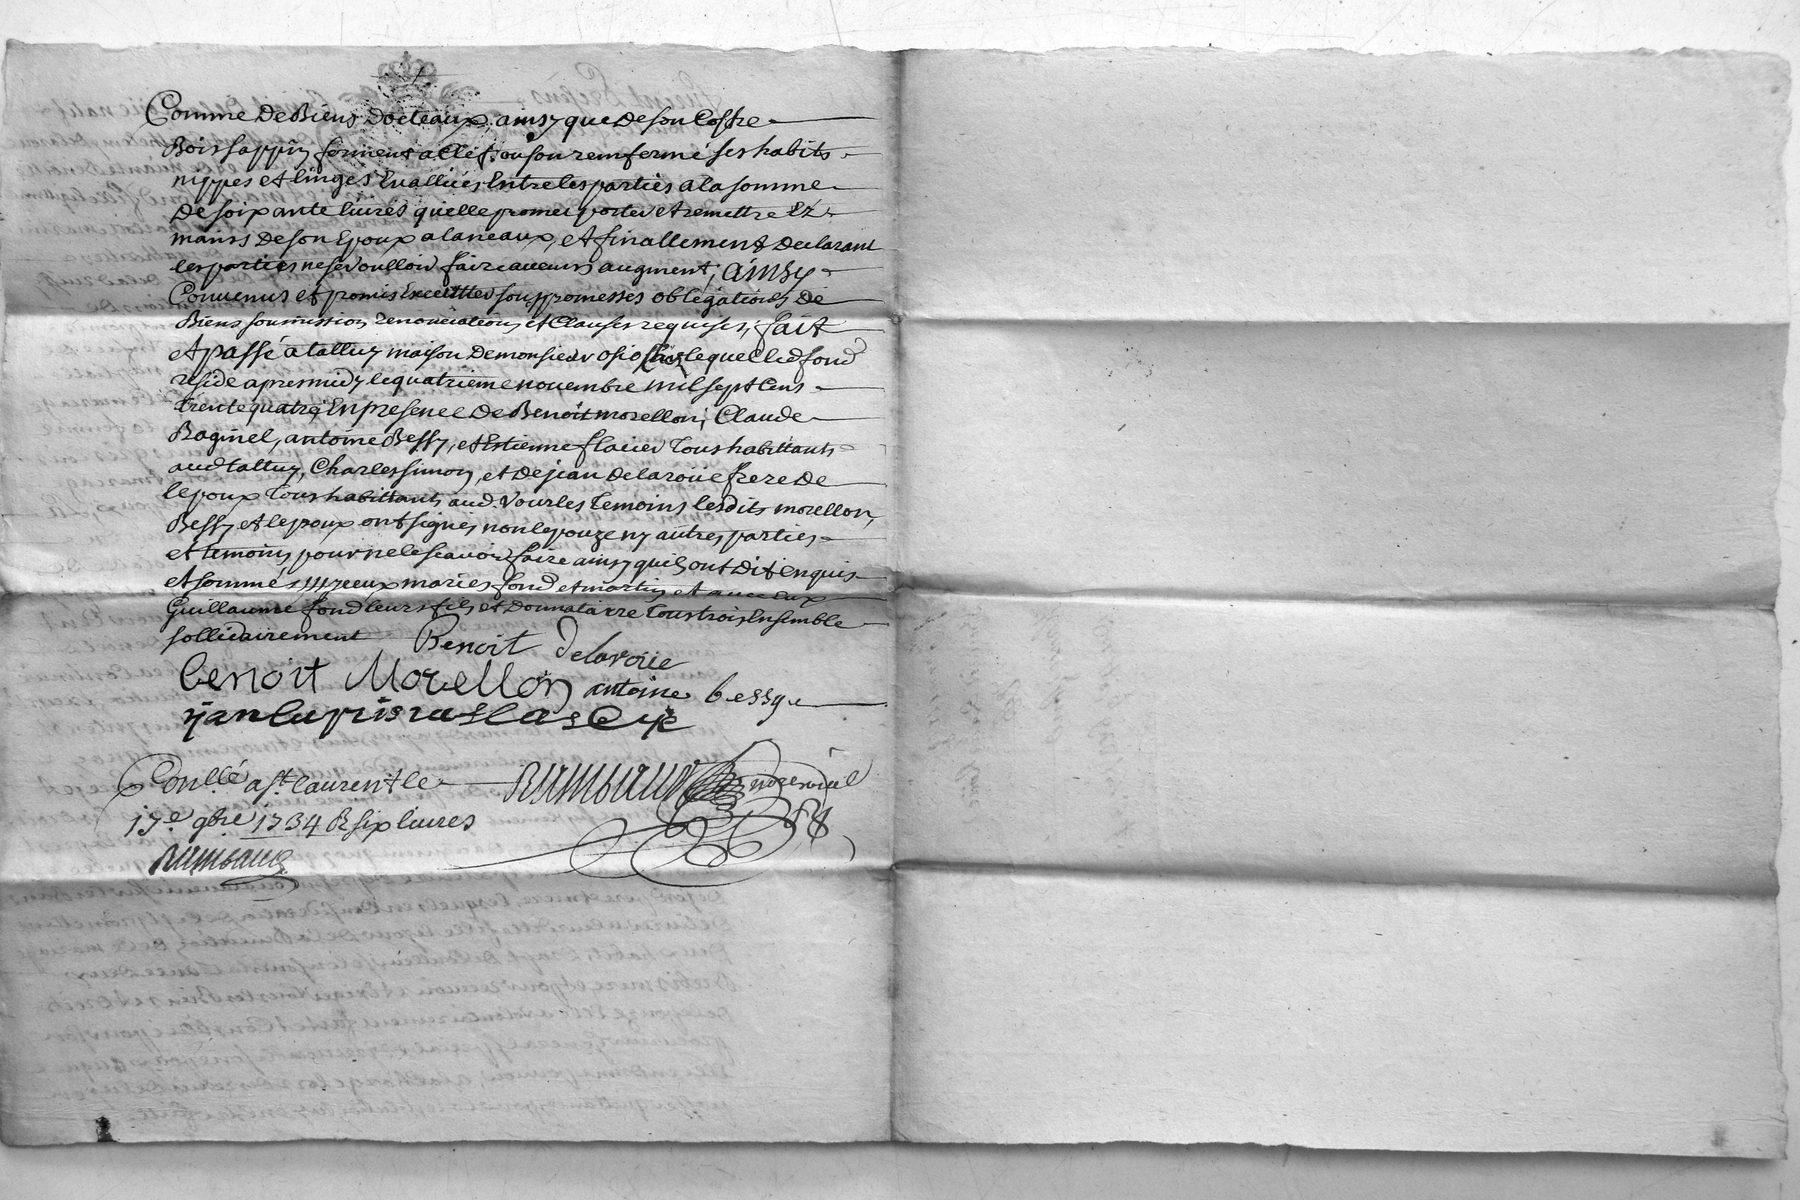 Comme De Biens Docteaux, ainsy que De son Coffre
Bois sappin fermens a Clef, ou son remfermé ses habits
nippes et linges Evalliies Entre les parties a la somme
De soixante livres quelle promet porter et remettre Ez
mains De son Epoux a lanceaux, et finallement Declarant
les parties ne se voulloir faire aucuns augment; ainsy
Convenus et promis Executter sous promesses obligations De
Biens soumission renonciations et Clauses requises, fait
et passé a talluy maison De monsieur lequel led fond
reside apres midy le quatrieme novembre mil sept Cens
trente quatre, En presence De Benoit morellon, Claude
Raginel, antoine Bessy, et Estienne flacier Tous habittants
aud talluy, Charles Simon, et De jean Delaroüe frere De
lepoux Tous habittants aud. Vourles Temoins lesdits morellon,
Bessy et lepoux ont signés non lepouze ny autres parties
et temoins pour ne le scavoir faire ainsy quils ont Dit enquis
et sommés maries fond et martin et avec eux
Guillaume fond leurs fils et Donnataire Tous trois Ensemble
sollidairement Benoit Delaroüe
benoit Morellon antoine bessy
Conllé a St. laurent le Rimbaud
17e 9bre 1734 R six livres
Rimbaud